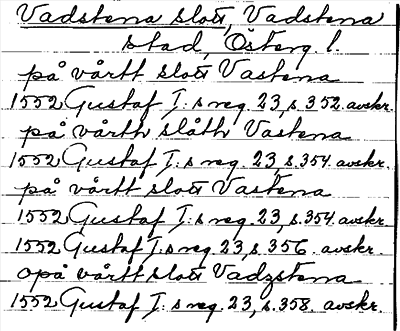 Vadstena slott, Vadstena
stad, Österg. l.
på vårtt slott Vastena
1552 Gustaf I:s reg. 23, s. 352. avskr.
på vårth slåth Vastena
1552 Gustaf I:s reg. 23, s. 354. avskr.
på vårtt slott Vastena
1552 Gustaf I:s reg. 23, s. 354 avskr.
1552 Gustaf I:s reg. 23, s. 356. avskr.
opå vårtt slott Vadzstena
1552 Gustaf I:s reg. 23, s. 358. avskr.